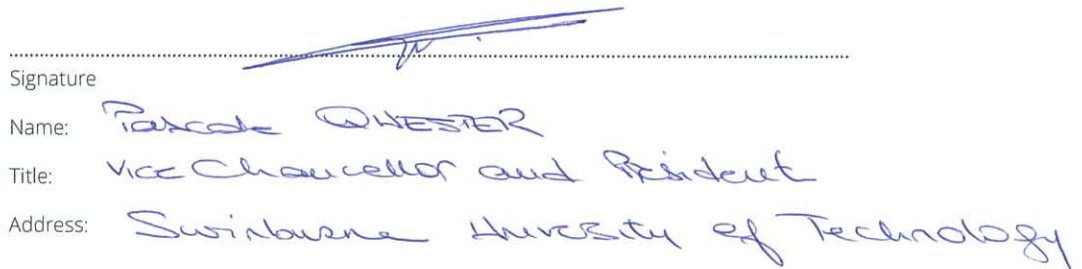 Signature
Name: Pascale QUESTER
Title: Vice Chancellor and President
Address: Swinburne University of Technology